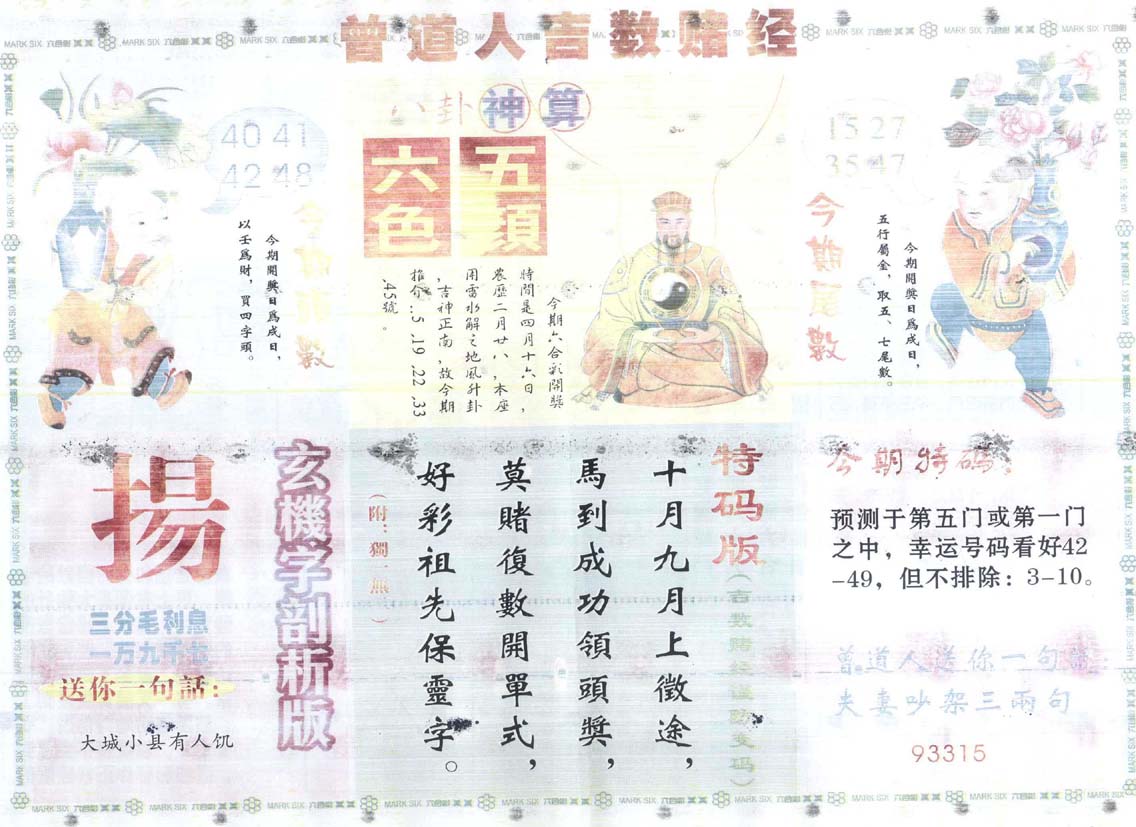 曾道人吉数赌经
八卦神算
五頭
六色
40 41
42 48
今期開獎日爲成日，
以壬爲財，買四字頭。
今期六合彩開獎
時間是四月十六日，
農歷二月廿八，本座
用雷水解之地風升卦
，吉神正南，故今期
推介..5 .19 .22 .33
.45號。
15 27
35 47
今期尾數
今期開獎日爲成日，
五行屬金，取五、七尾數。
玄機字剖析版
揚
三分毛利息
一万九千七
送你一句話：
大城小县有人饥
特码版
（吉数赌经谨防变码）
十月九月上徵途，
馬到成功領頭獎，
莫賭復數開單式，
好彩祖先保靈字。
（附：獨一無）
今期特码：
预测于第五门或第一门
之中，幸运号码看好42
-49，但不排除：3-10。
曾道人送你一句话
夫妻吵架三兩句
93315
MARK SIX 六合彩